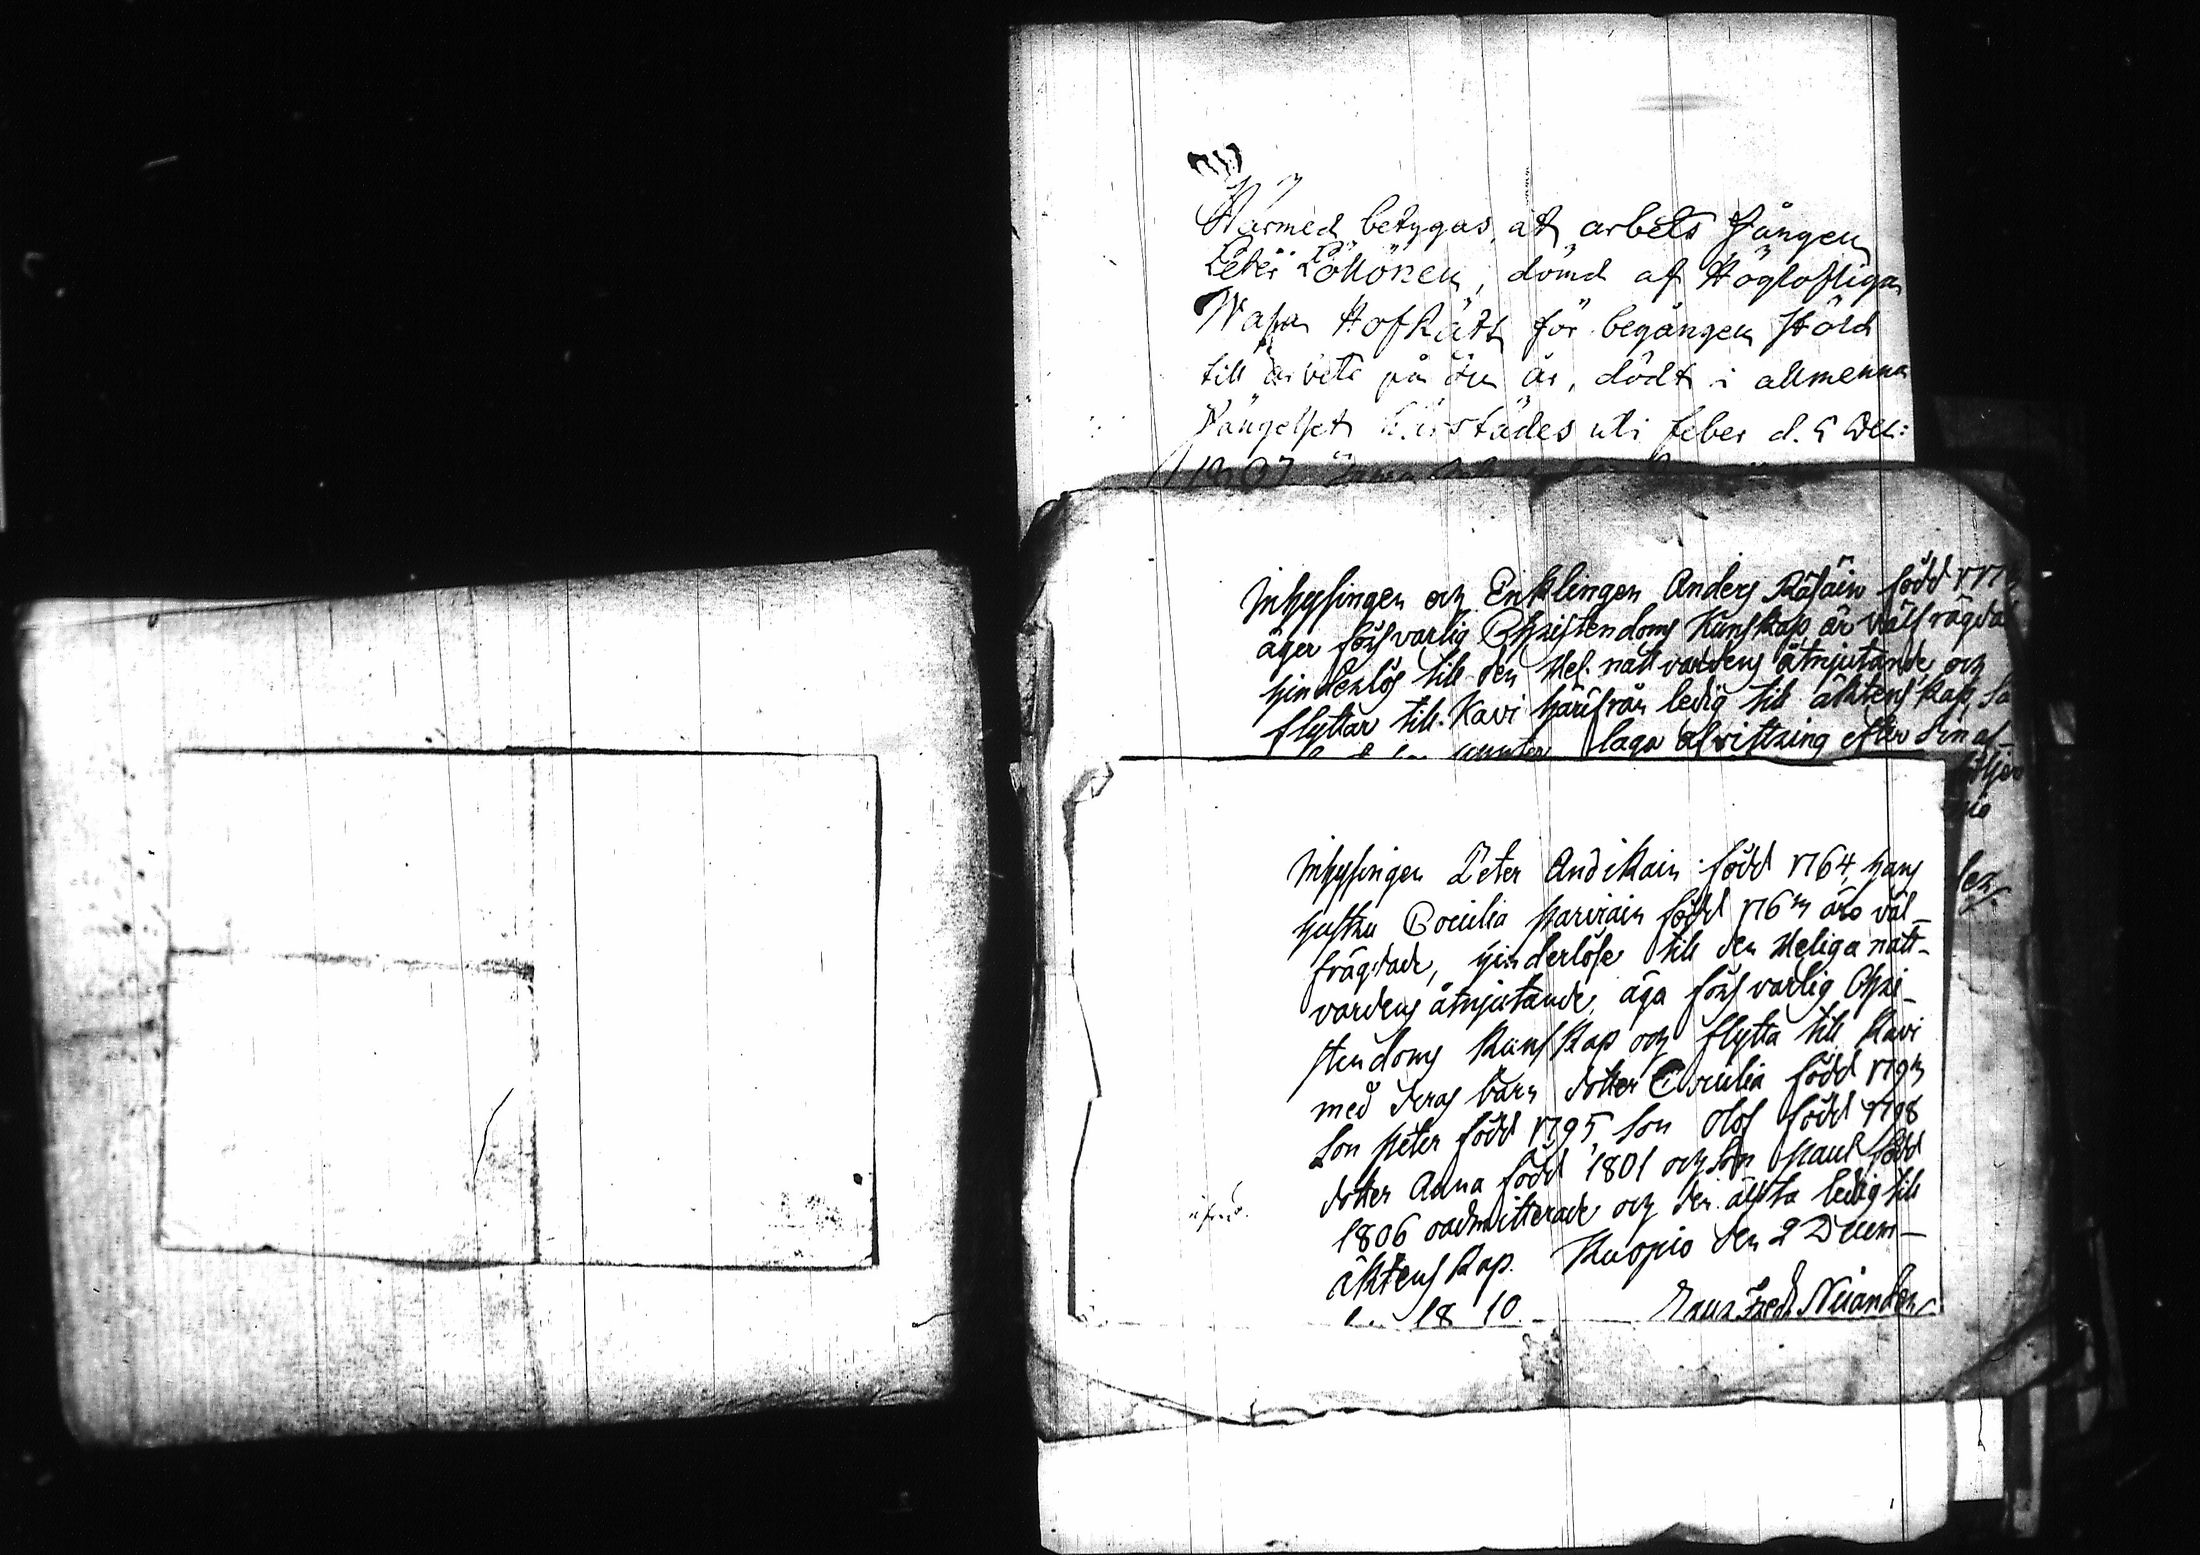 Härmed betygas, att arbets fången
Peter Pöllönen, dömd af Höglofliga
Wasa HofRätt för begången stöld
till arbete på ön år, dödt i allmenna
Fängelset härstädes uti feber d. 5 Dec:
1807
Inhysingen och Enklingen Anders Räsäin född 177
äger försvarlig Christendoms Kunskap, är välfrägdad
hinderlös till den Hel. nattvardens åtnjutande, och
flyttar till Kavi härifrån ledig till äktenskap, så
laga afvittring efter sin af
Inhysingen Peter Andikain född 1764, hans
hustru Cecilia Parviain född 176 äro väl-
frägdade, hinderlöse till den Heliga natt-
vardens åtnjutande, äga försvarlig Chri-
stendoms Kunskap och flytta till Kavi
med deras barn dotter Cecilia född 179
Son Peter född 1795, Son Olof född 1798
dotter Anna född 1801 och Son Paul född
1806 oadmitterade och den älsta ledig till
äktenskap. Kuopio den 2 Decem-
1810. Fredr Nijander